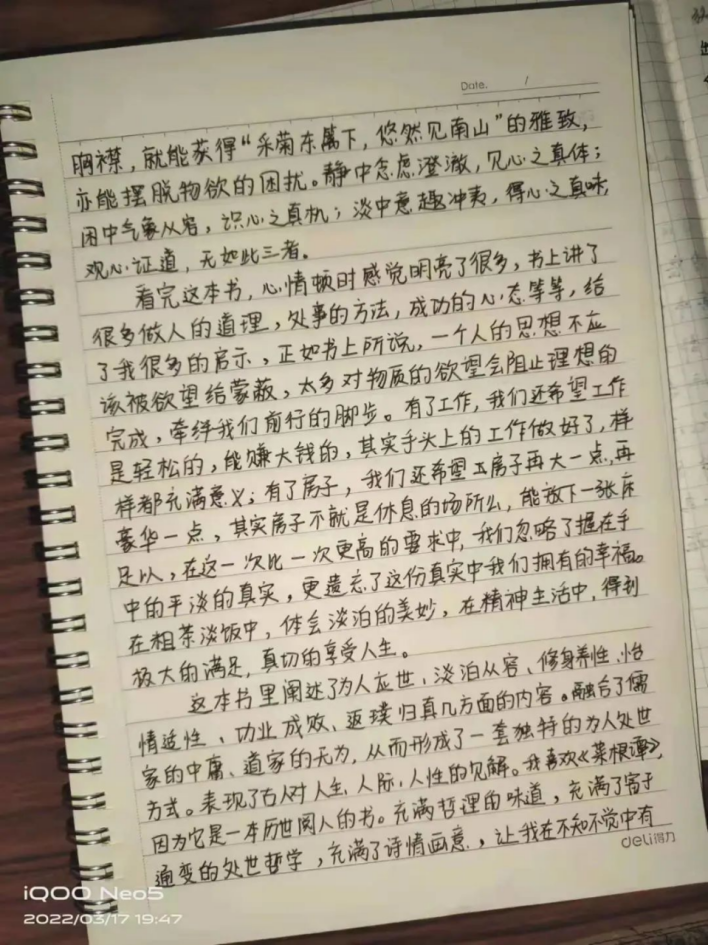 Date. /
胸襟，就能获得“采菊东篱下，悠然见南山”的雅致，
亦能摆脱物欲的困扰。静中念虑澄澈，见心之真体；
闲中气象从容，识心之真机；淡中意趣冲夷，得心之真味，
观心证道，无如此三者。
看完这本书，心情顿时感觉明亮了很多，书上讲了
很多做人的道理，处事的方法，成功的心态等等，给
了我很多的启示，正如书上所说，一个人的思想不应
该被欲望给蒙蔽，太多对物质的欲望会阻止理想的
完成，牵绊我们前行的脚步。有了工作，我们还希望工作
是轻松的，能赚大钱的，其实手头上的工作做好了，样
样都充满意义；有了房子，我们还希望房子再大一点，再
豪华一点，其实房子不就是休息的场所么，能放下一张床
足以，在这一次比一次更高的要求中，我们忽略了握在手
中的平淡的真实，更遗忘了这份真实中我们拥有的幸福。
在粗茶淡饭中，体会淡泊的美妙，在精神生活中，得到
极大的满足，真切的享受人生。
这本书里阐述了为人应世、淡泊从容、修身养性、怡
情适性、功业成败、返璞归真几方面的内容。融合了儒
家的中庸、道家的无为，从而形成了一套独特的为人处世
方式。表现了古人对人生、人际、人性的见解。我喜欢《菜根谭》，
因为它是一本历世阅人的书。充满哲理的味道，充满了富于
通变的处世哲学，充满了诗情画意，让我在不知不觉中有
deli得力
iQOO Neo5
2022/03/17 19:47